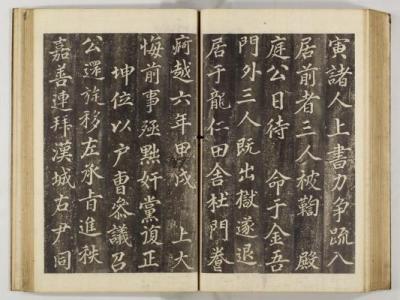 寅諸人上書力争疏入
居前者三人被鞫 殿
庭公日待 命于金吾
門外三人既出獄遂退
居于龍仁田舍杜門養
痾越六年甲戌 上大
悔前事殛黜奸黨復正
坤位以户曹參議召
公還旋移左承旨進秩
嘉善連拜漢城右尹同